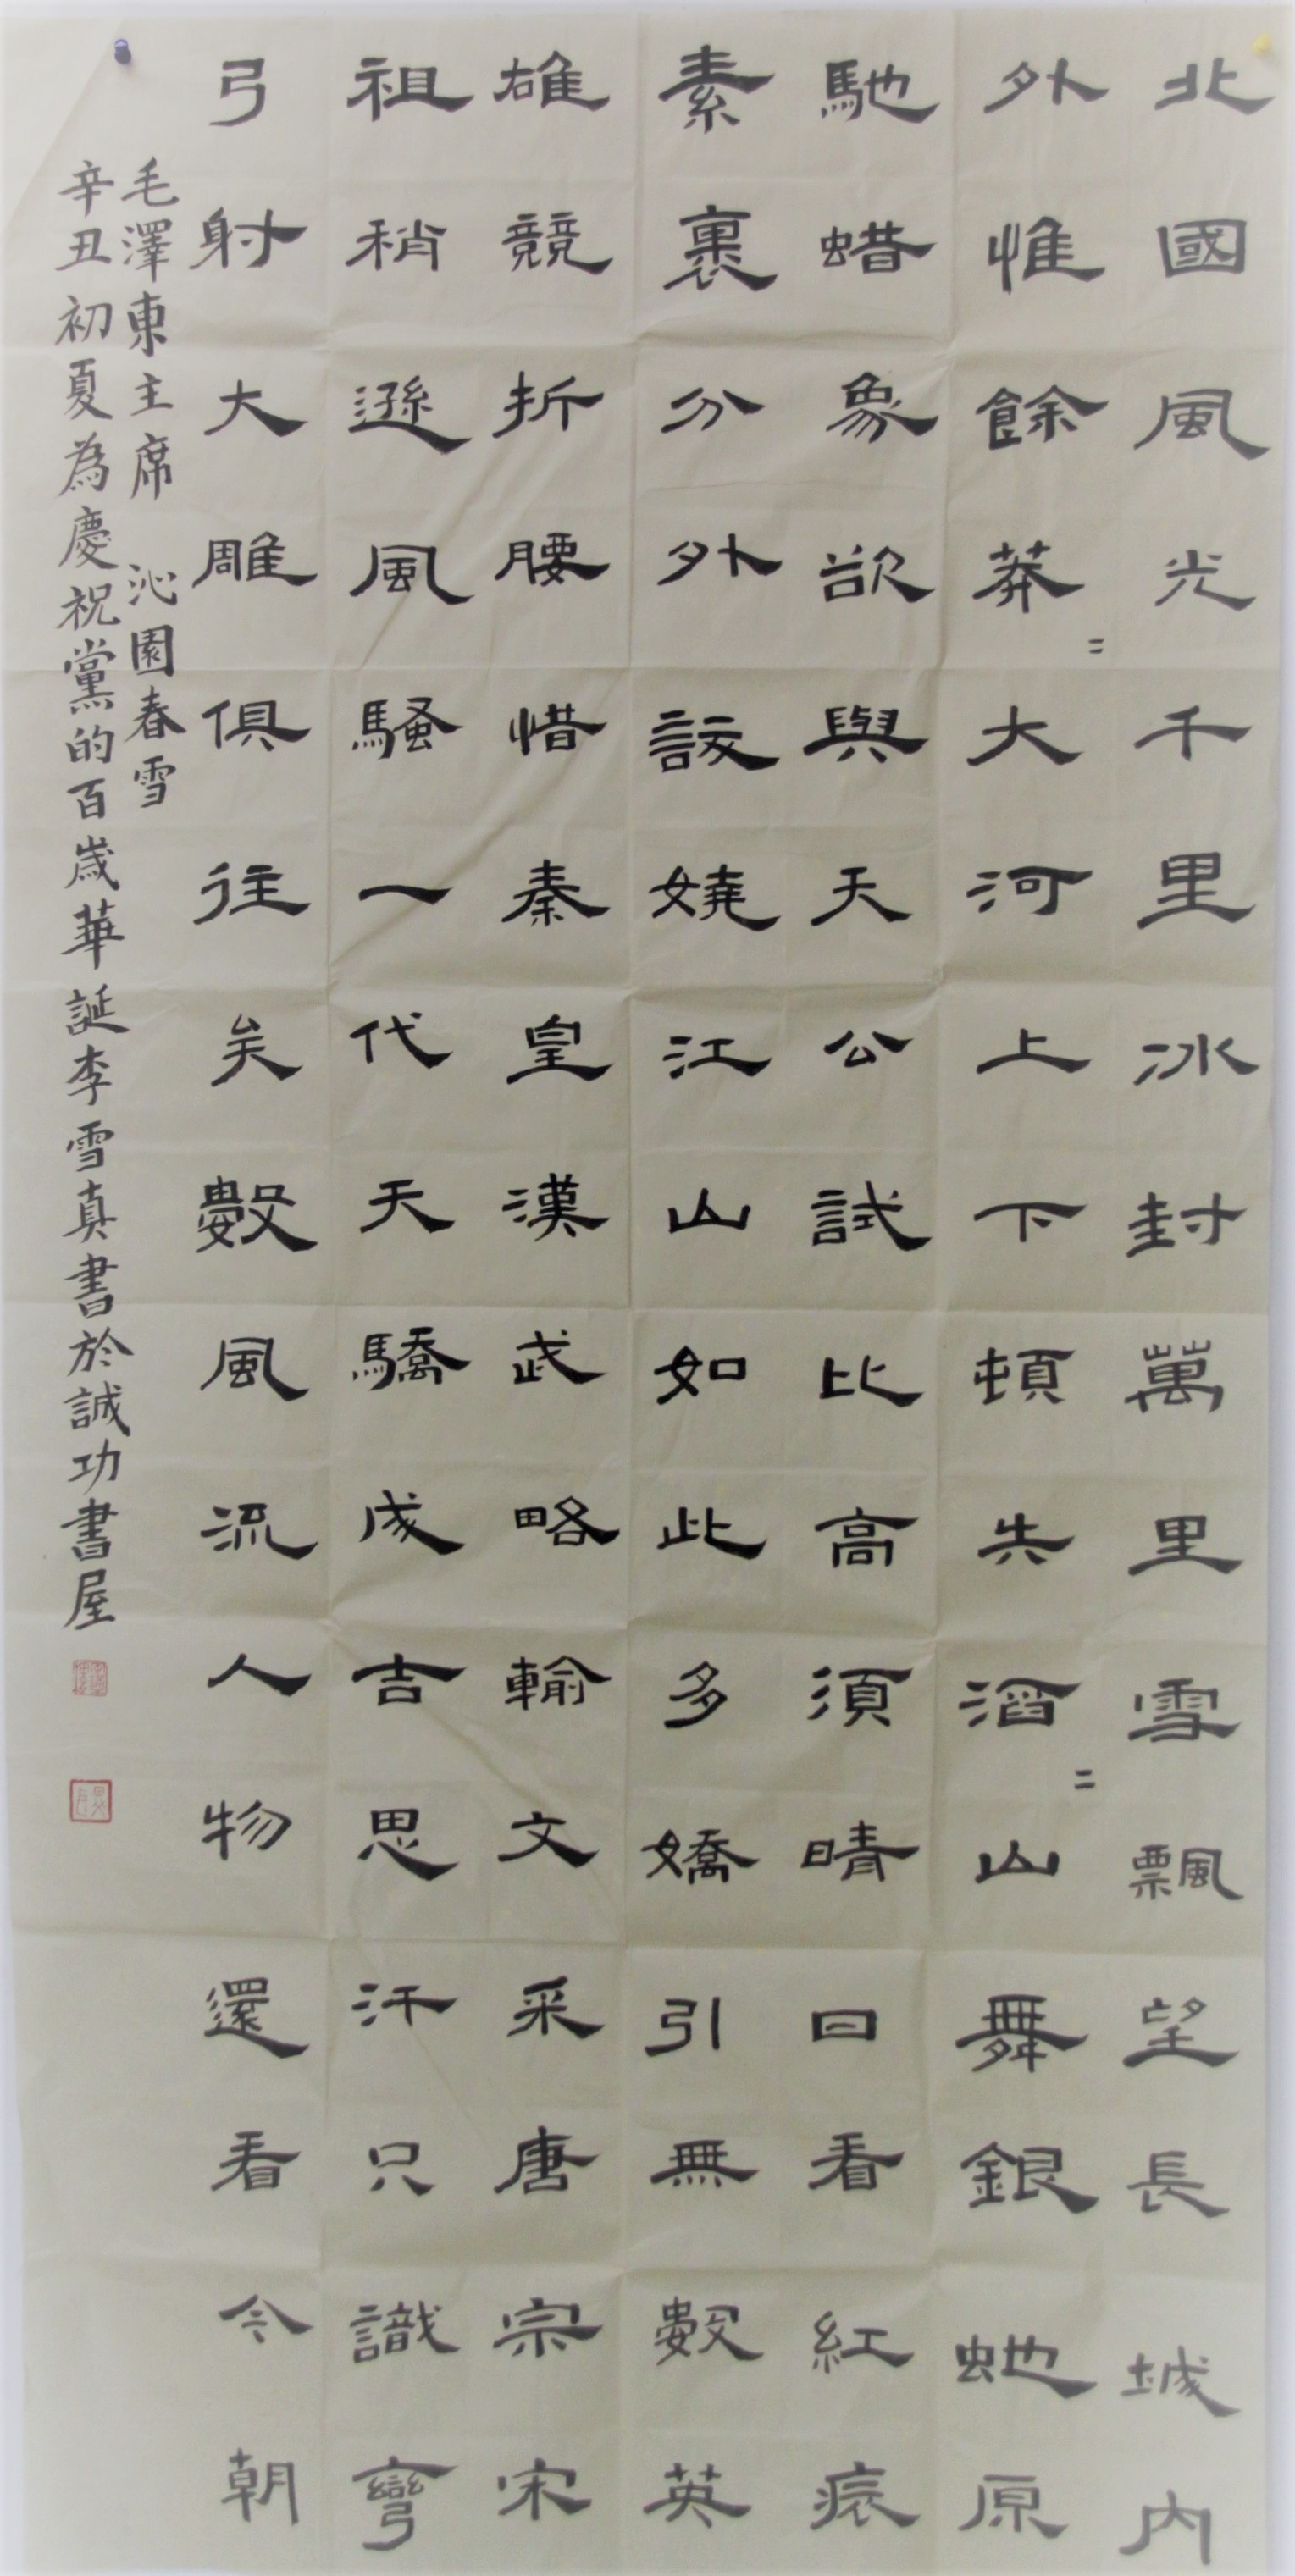 北國風光千里冰封萬里雪飄望長城內
外惟餘莽〻大河上下頓失滔〻山舞銀虵原
馳蜡象欲與天公試比高須晴日看紅痕
素裹分外設娆江山如此多嬌引無數英
雄競折腰惜秦皇漢武略輸文采唐宗宋
祖稍遜風騷一代天驕成吉思汗只識彎
弓射大雕俱往矣數風流人物還看今朝
毛澤東主席 沁園春雪
辛丑初夏為慶祝黨的百歲華誕李雪真書於誠功書屋